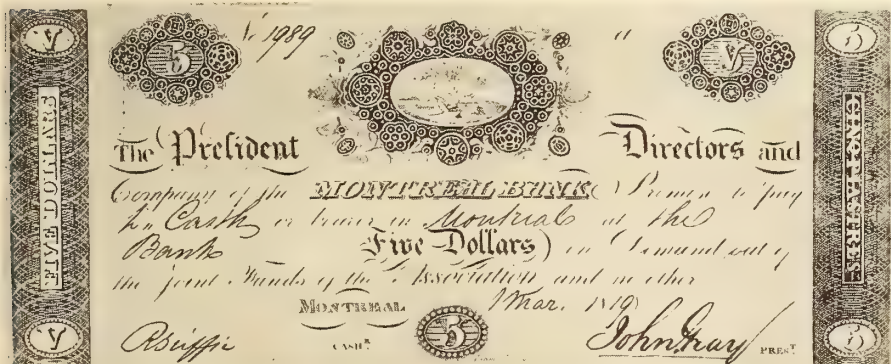 V N 1989 a 5
5 V
The President Directors and
Company of the MONTREAL BANK Promise to pay
to Cash or bearer in Montreal at the
Bank Five Dollars on Demand out of
the joint Funds of the Association and no other
MONTREAL 1 Mar. 1819
CASHR. John Gray PREST.
FIVE DOLLARS
V 5 5